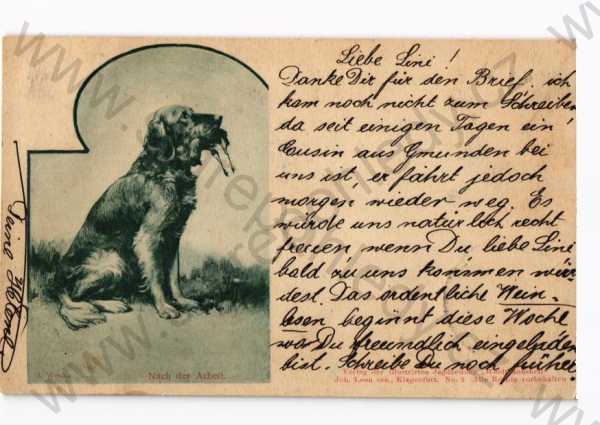 Liebe Lini!
Danke Dir für den Brief, ich
kam noch nicht zum Schreiben
da seit einigen Tagen ein
Cousin aus Gmunden bei
uns ist, er fährt jedoch
morgen wieder weg. Es
würde uns natürlich recht
freuen wenn Du liebe Lini
bald zu uns kommen wür-
dest. Das ordentliche Wein-
lesen beginnt diese Woche
wo Du freundlich eingeladen
bist. Schreibe Du noch früher
Deine
Nach der Arbeit.
Verlag der Illustrirten Jagdzeitung
Joh. Leon sen., Klagenfurt. No. 2 Alle Rechte vorbehalten